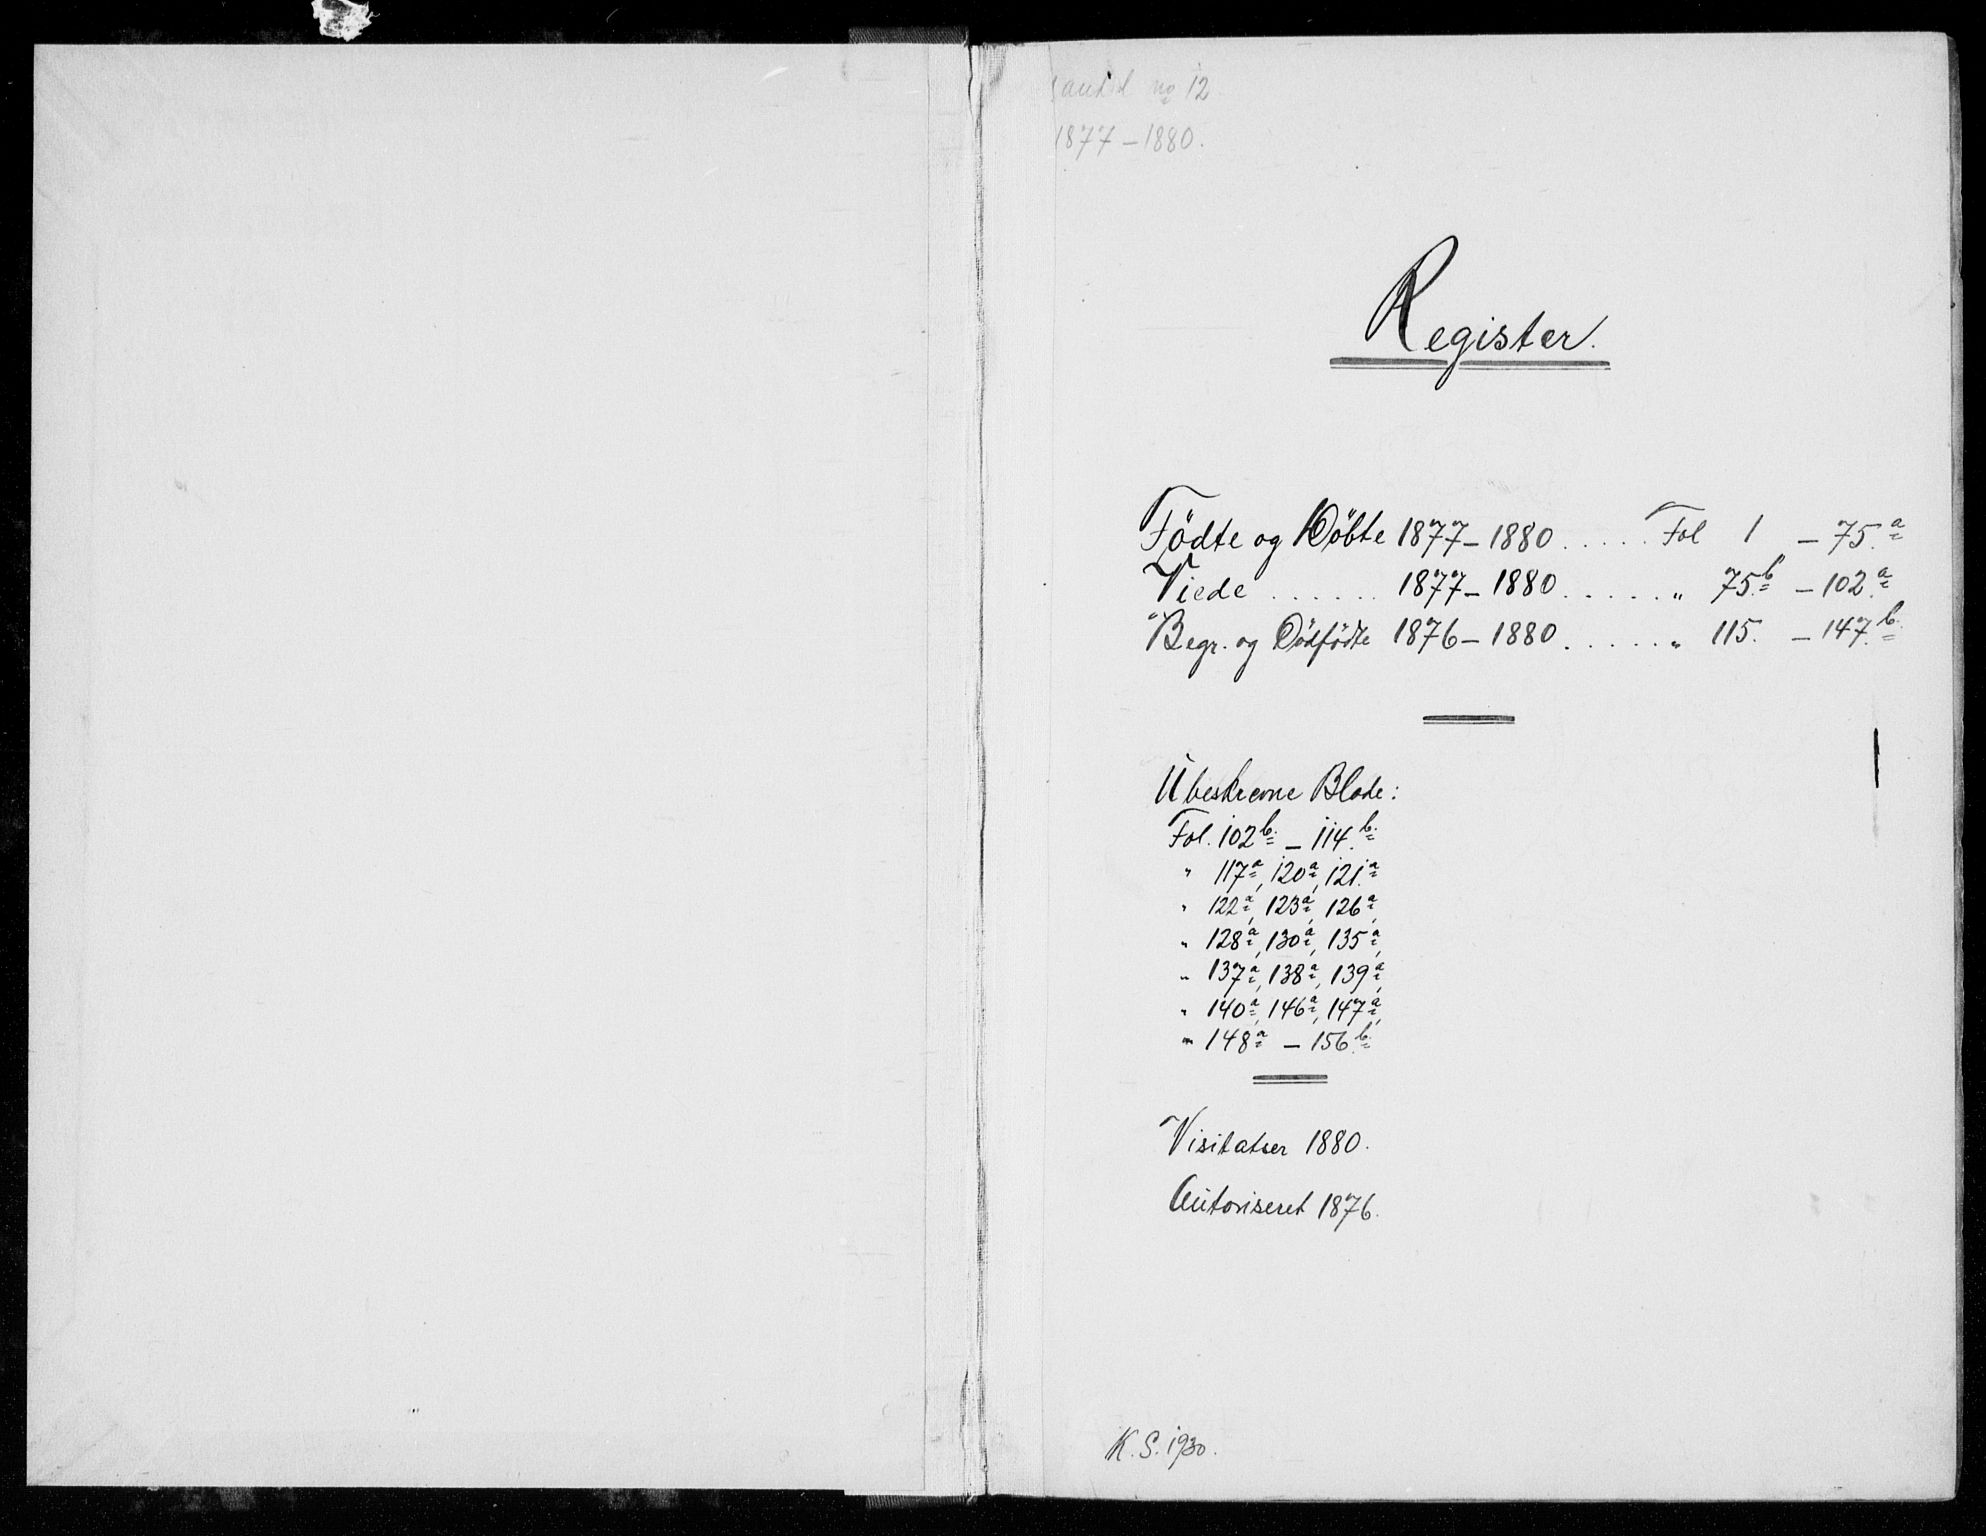 no 12.
1877 – 1880.
Register.
Födte og Döbte 1877 – 1880 . . . . . Fol 1 – 75.a
Viede . . . . . . 1877 – 1880 . . . . . „ 75.b – 102.a
Begr. og Dödfödte 1876 – 1880 . . . . . „ 115. – 147.b
Ubeskrevne Blade:
Fol. 102b – 114.b
„ 117a, 120a, 121.a
„ 122a, 123a, 126a,
„ 128a, 130a, 135a,
„ 137a, 138a, 139a,
„ 140a, 146a, 147a,
„ 148a – 156.b
Visitatser 1880.
Autoriseret 1876.
K. S. 1930.